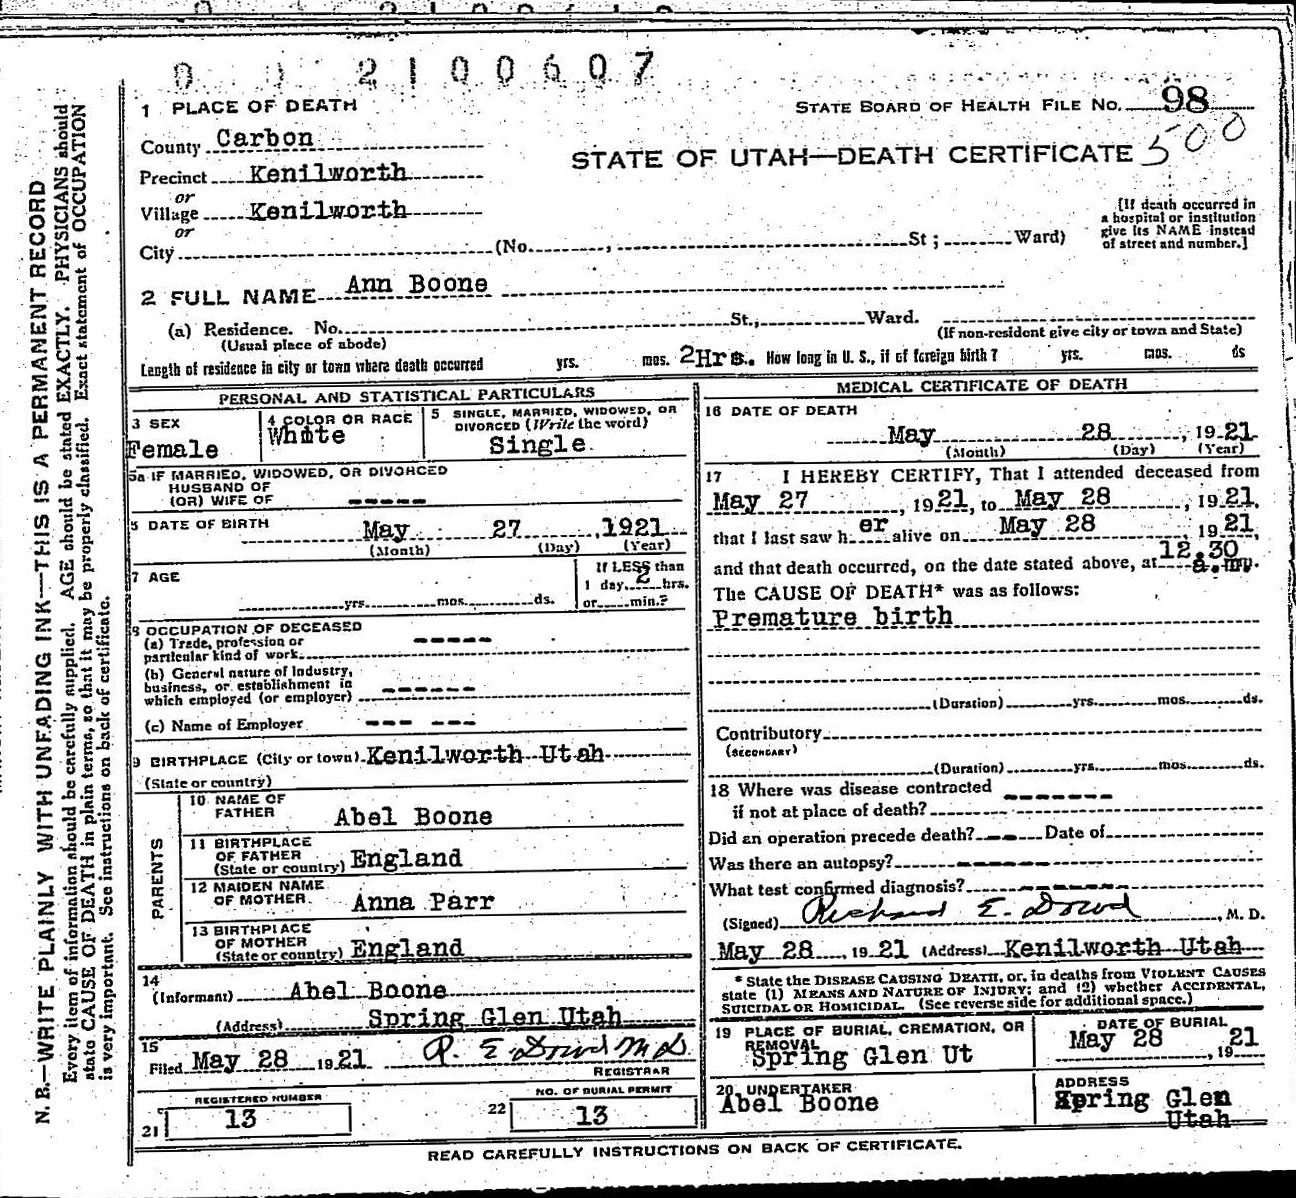 2100607
1 PLACE OF DEATH
STATE BOARD OF HEALTH FILE NO. 98
County Carbon
500
STATE OF UTAH—DEATH CERTIFICATE
Precinct Kenilworth
or
Village Kenilworth
or
City (No. , St ; Ward)
[If death occurred in
a hospital or institution
give its NAME instead
of street and number.]
2 FULL NAME Ann Boone
(a) Residence. No. St., Ward.
(Usual place of abode)
(If non-resident give city or town and State)
Length of residence in city or town where death occurred yrs. mos. 2Hrs. How long in U. S., if of foreign birth ? yrs. mos. ds
PERSONAL AND STATISTICAL PARTICULARS
3 SEX
Female
4 COLOR OR RACE
White
5 SINGLE, MARRIED, WIDOWED, OR
DIVORCED (Write the word)
Single
5a IF MARRIED, WIDOWED, OR DIVORCED
HUSBAND OF
(OR) WIFE OF -----
6 DATE OF BIRTH
May 27 , 1921
(Month) (Day) (Year)
7 AGE
yrs. mos. ds.
If LESS than
1 day, 2 hrs.
or min.?
8 OCCUPATION OF DECEASED
(a) Trade, profession or
particular kind of work -----
(b) General nature of Industry,
business, or establishment in
which employed (or employer) ------
(c) Name of Employer --- ---
9 BIRTHPLACE (City or town) Kenilworth Utah
(State or country)
PARENTS
10 NAME OF
FATHER Abel Boone
11 BIRTHPLACE
OF FATHER
(State or country) England
12 MAIDEN NAME
OF MOTHER Anna Parr
13 BIRTHPLACE
OF MOTHER
(State or country) England
14
(Informant) Abel Boone
(Address) Spring Glen Utah
15
Filed May 28 1921 R. E. Dowd M D
REGISTRAR
REGISTERED NUMBER
21 13
NO. OF BURIAL PERMIT
22 13
MEDICAL CERTIFICATE OF DEATH
16 DATE OF DEATH
May 28 , 1921
(Month) (Day) (Year)
17 I HEREBY CERTIFY, That I attended deceased from
May 27 , 1921, to May 28 , 1921,
that I last saw her alive on May 28 , 1921,
and that death occurred, on the date stated above, at 12.30 a.m.
The CAUSE OF DEATH* was as follows:
Premature birth
(Duration) yrs. mos. ds.
Contributory
(SECONDARY)
(Duration) yrs. mos. ds.
18 Where was disease contracted
if not at place of death? -------
Did an operation precede death? -- Date of
Was there an autopsy? ------
What test confirmed diagnosis? ------
(Signed) Richard E. Dowd , M. D.
May 28 , 1921 (Address) Kenilworth Utah
* State the DISEASE CAUSING DEATH, or, in deaths from VIOLENT CAUSES
state (1) MEANS AND NATURE OF INJURY; and (2) whether ACCIDENTAL,
SUICIDAL OR HOMICIDAL. (See reverse side for additional space.)
19 PLACE OF BURIAL, CREMATION, OR
REMOVAL
Spring Glen Ut
DATE OF BURIAL
May 28 , 1921
20 UNDERTAKER
Abel Boone
ADDRESS
Spring Glen
Utah
READ CAREFULLY INSTRUCTIONS ON BACK OF CERTIFICATE.
N. B.—WRITE PLAINLY WITH UNFADING INK—THIS IS A PERMANENT RECORD
Every item of information should be carefully supplied. AGE should be stated EXACTLY. PHYSICIANS should
state CAUSE OF DEATH in plain terms, so that it may be properly classified. Exact statement of OCCUPATION
is very important. See instructions on back of certificate.